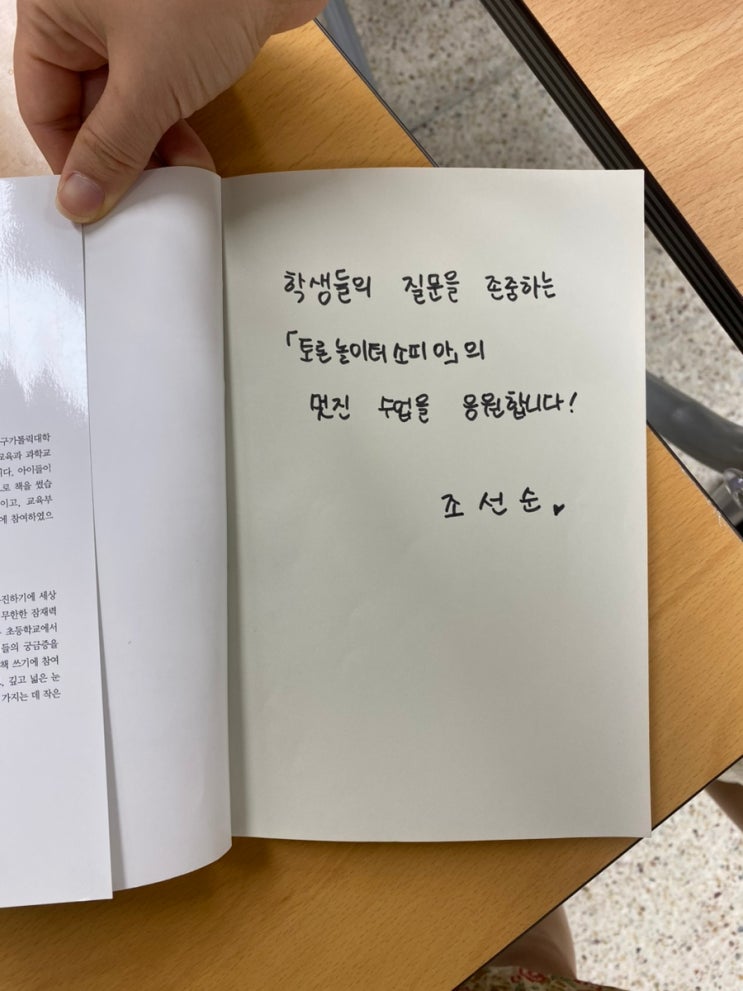 학생들의 질문을 존중하는
「토론놀이터 소피아」의
멋진 수업을 응원합니다!
조선순♥
구가톨릭대학
교육과 과학교
니다. 아이들이
로 책을 썼습
이고, 교육부
에 참여하였으
진하기에 세상
무한한 잠재력
초등학교에서
들의 궁금증을
책 쓰기에 참여
, 깊고 넓은 눈
가지는 데 작은